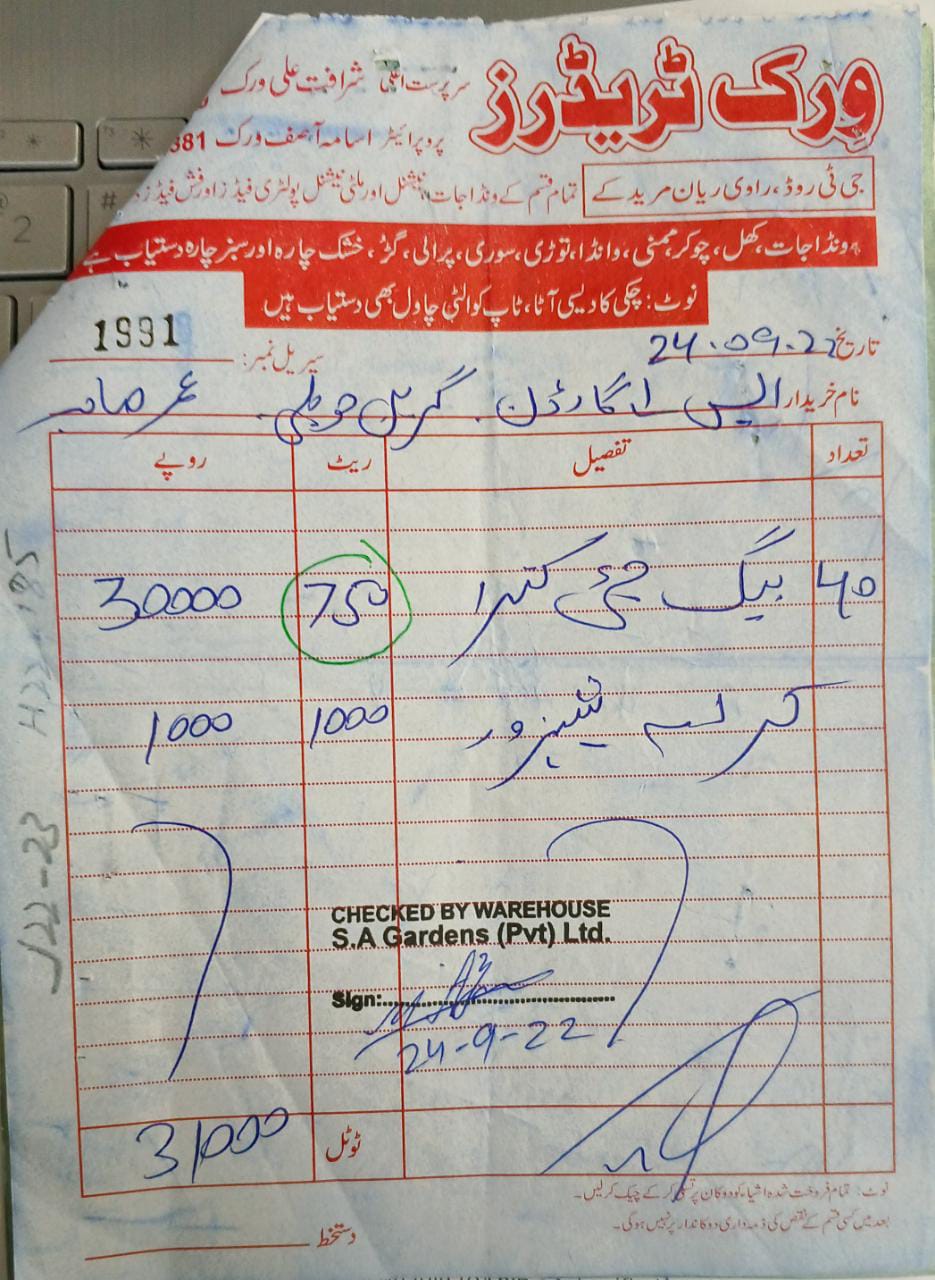 ورک ٹریڈرز
سرپرست اعلیٰ شرافت علی ورک
پروپرائیٹر اسامہ آصف ورک 881
جی ٹی روڈ، راوی ریان مرید کے
تمام قسم کے ونڈا جات، نیشنل اور ملٹی نیشنل پولٹری فیڈز اور فش فیڈز
ونڈا جات، کھل، چوکر، ممنی، وانڈا، توڑی، سوری، پرالی، گڑ، خشک چارہ اور سبز چارہ دستیاب ہے
نوٹ: چکی کا دیسی آٹا، ٹاپ کوالٹی چاول بھی دستیاب ہیں
تاریخ 24.09.22 سیریل نمبر: 1991
نام خریدار ایس اے گارڈن۔ گریل حویلی۔ عمر صاحب
تعداد تفصیل ریٹ روپے
40 بیگ کترا 750 30000
کرایہ شہزور 1000 1000
CHECKED BY WAREHOUSE
S.A Gardens (Pvt) Ltd.
Sign:
24-9-22
ٹوٹل 31000
نوٹ: تمام فروخت شدہ اشیاء کو دوکان پر تسلی کر کے چیک کر لیں۔
بعد میں کسی قسم کے نقص کی ذمہ داری دوکاندار پر نہیں ہوگی۔
دستخط
J22-23